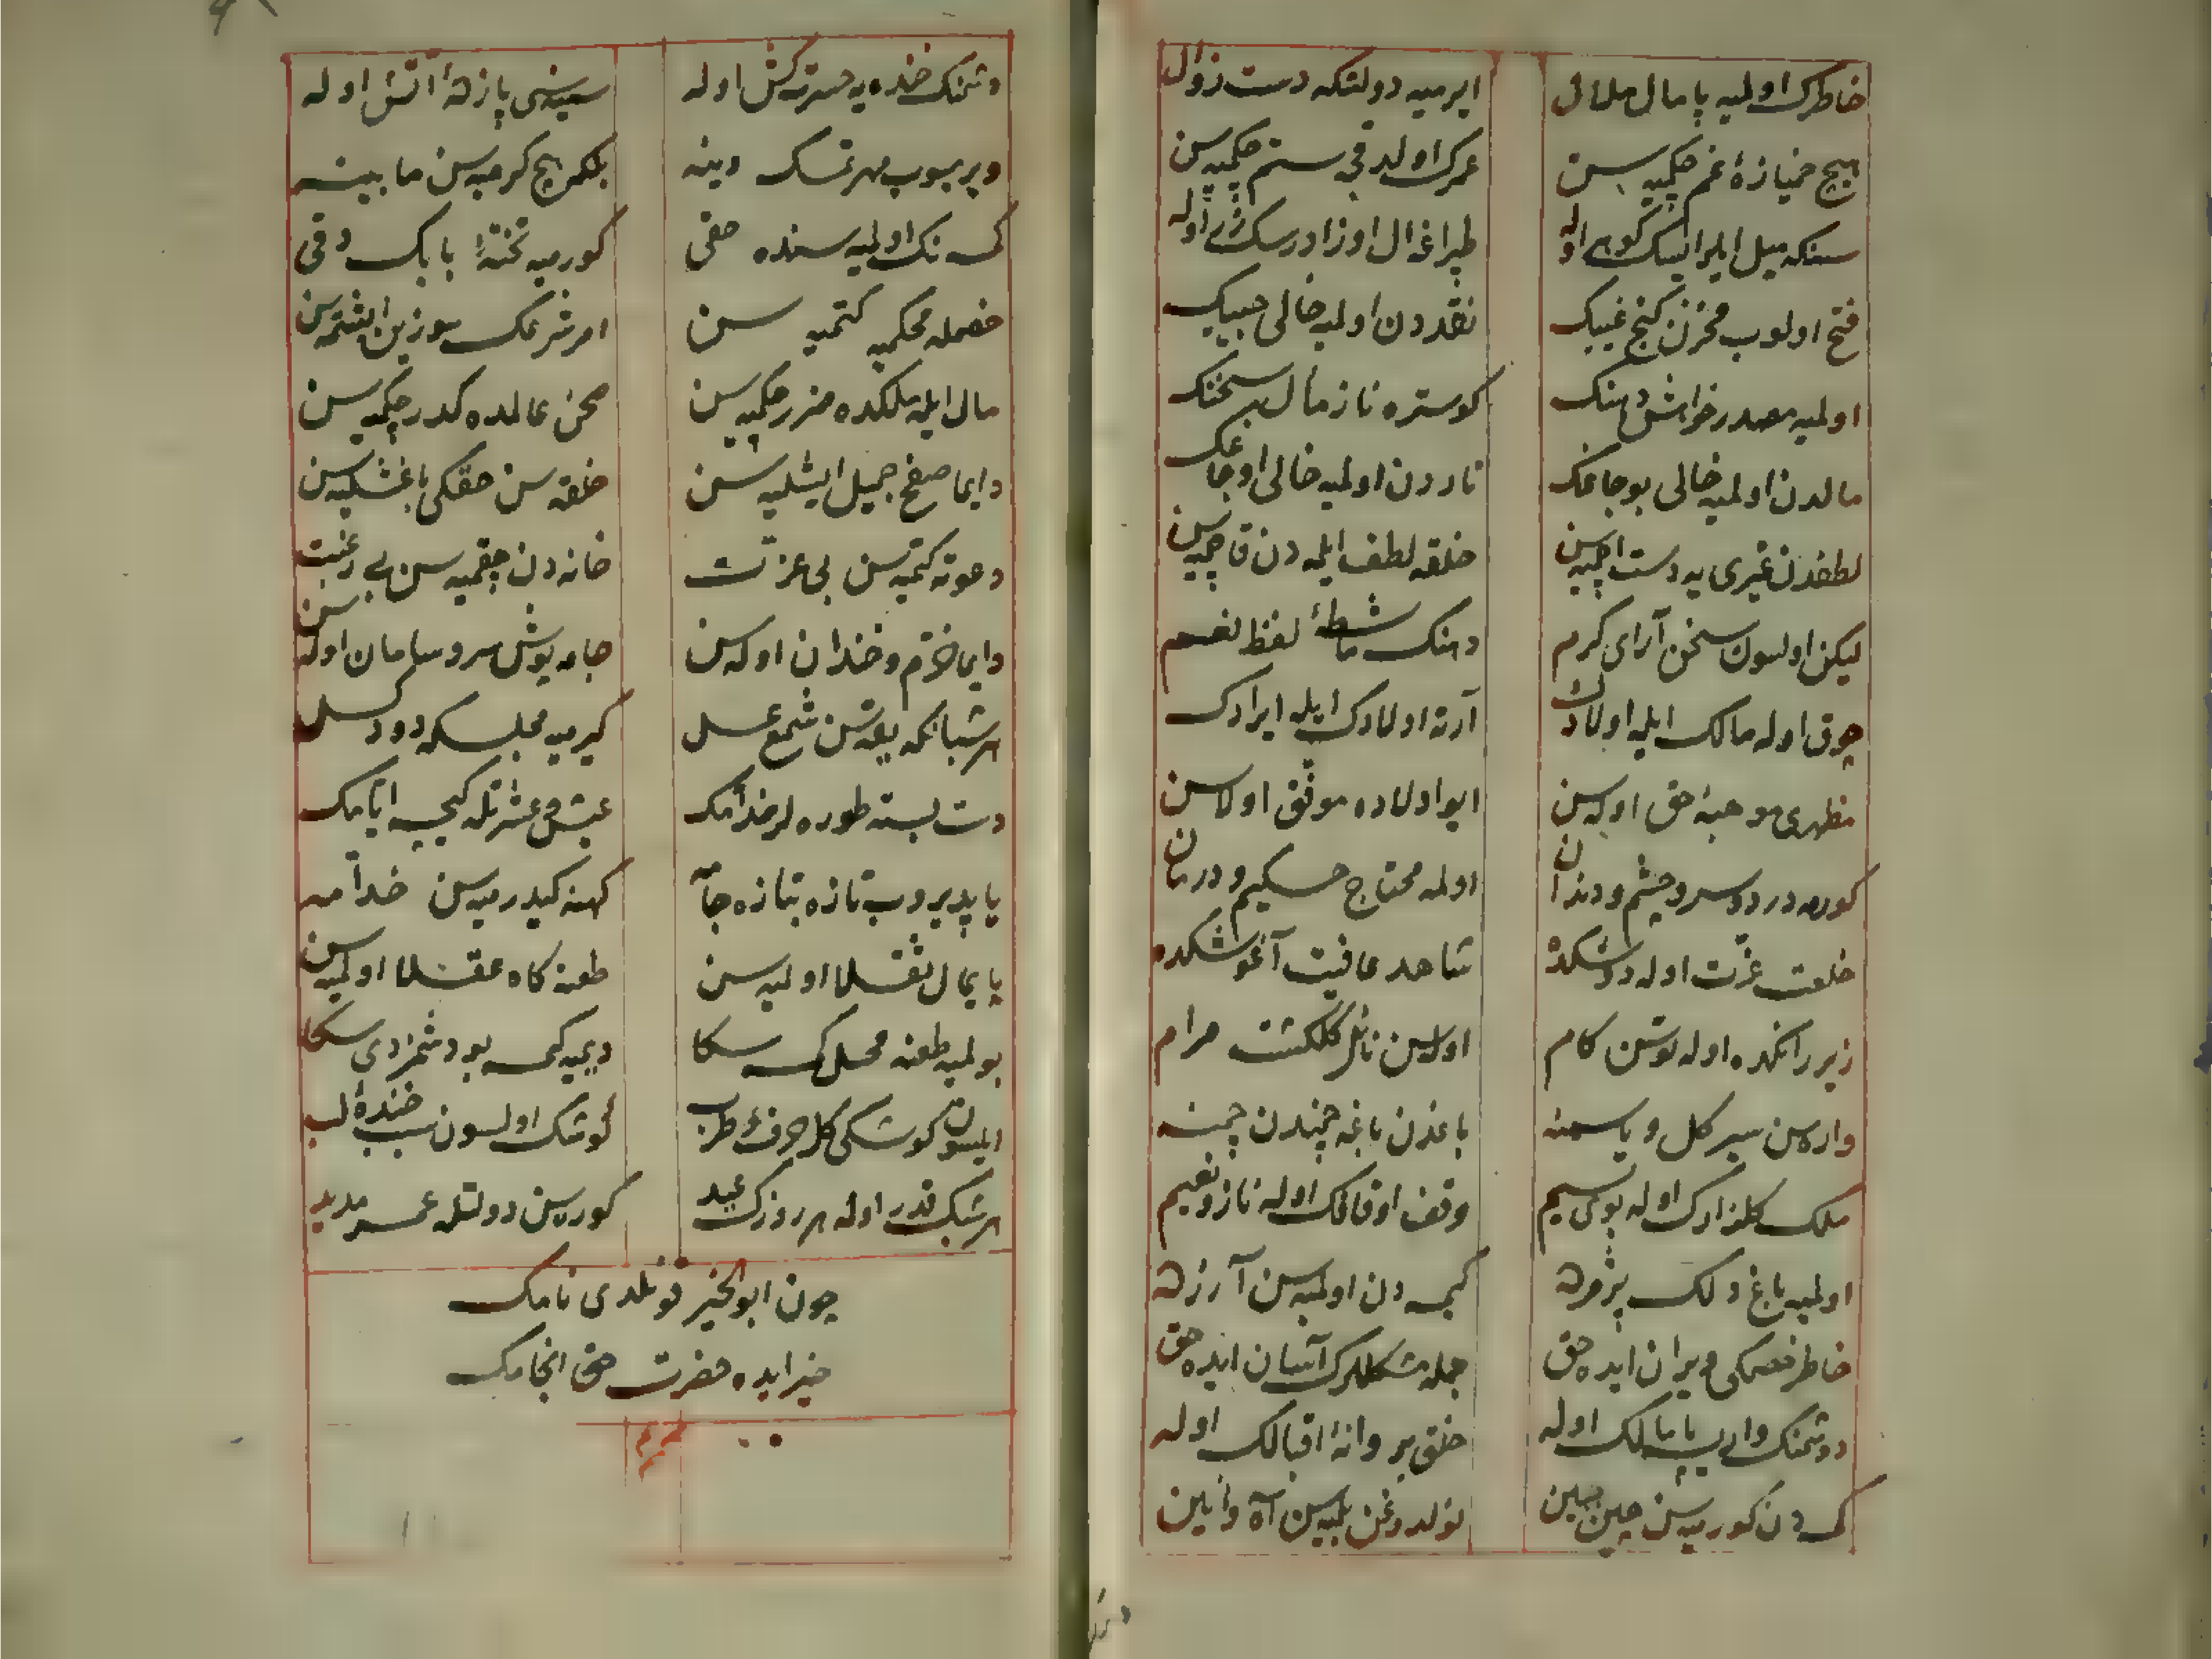 خاطرك اولميه پامال ملال
ايرميه دولتكه دست زوال
هيچ خميازۀ غم چكميه سن
عمرك اولدقجه ستم چكميه سن
سنكه ميل ايلر ايسك كوهى اوله
طپراغه ال اوزادرسك زر اوله
فتح اولوب مخزن كنج غيبك
نقددن اولميه خالى جيبك
اولميه مصدر خراش دهنك
كوستره ناز مآل سخنك
مالدن اولميه خالى بوجاغك
ناردن اولميه خالى اوجاغك
لطفدن غيرى يه دست آچميه سن
خلقه لطف ايلمه دن قاچميه سن
ليكن اولسون سخن آراى كرم
دهنك ماشطۀ لفظ نعم
چوق اوله مالك ايله اولادك
آرته اولادك ايله ايرادك
مظهرى موهبۀ حق اوله سن
ايو اولاده موفق اولاسن
كورمه درد سر و چشم و دندان
اولمه محتاج حكيم و درمان
خلعت عزت اوله دوشكده
شاهد عافيت آغوشكده
زير رانكده اوله توسن كام
اولاسن نائل كلكشت مرام
واره سن سير كل و ياسمنه
باغدن باغه چمندن چمنه
ملك كلزارك اوله بوى نسيم
وقف اوقاتك اوله ناز و نعيم
اولميه باغ دلك پژمرده
كيمسه دن اولميه سن آزرده
خاطر خصمكى ويران ايده حق
جمله مشكللرك آسان ايده حق
دوشمنك وار ايسه پامالك اوله
خلق پروانۀ اقبالك اوله
كمسه دن كورميه سن چين جبين
نولدوغن بلميه سن آه و انين
دشمنك خنده يه حسرتكش اوله
سينه سى پازدۀ آتش اوله
ويريوب مهر تمسك دينه
بلكم هيچ كرميه سن مابينه
كمسه نك اولميه سنده حقى
كورميه تختۀ بابك دقى
خصمله محكميه كتميه سن
امر شرعك سوزين ايشتميه سن
مال ايله ملكده ضرر چكميه سن
صحن عالمده كدر چكميه سن
دايما صفح جميل ايشليه سن
خلقه سن حقكى باغشليه سن
دعوته كتميه سن بى عزت
خانه دن چقميه سن بى رغبت
دايما خرم و خندان اوله سن
جامه پوش سر و سامان اوله سن
هر شبانكه يقه سن شمع عسل
كيرميه مجلسكه دود كسل
دست بسته طوره لر خدامك
عيش و عشرتله كيچه ايامك
ياپديروب تازه بتازه جامه
كهنه كيدرميه سن خدامه
پايمال ثقلا اولميه سن
طعنه كاه عقلا اولميه سن
بولميه طعنه محل كمسه سكا
ديميه كيمسه بودشمزدى سكا
ايلسون كوشكى كل حرف طرب
كوشك اولسون سبب خندۀ لب
هر شبك قدر اوله هر روزك عيد
كوره سن دولتله عمر مديد
چون ابوالخير قونلدى نامك
خير ايده حضرت حق انجامك